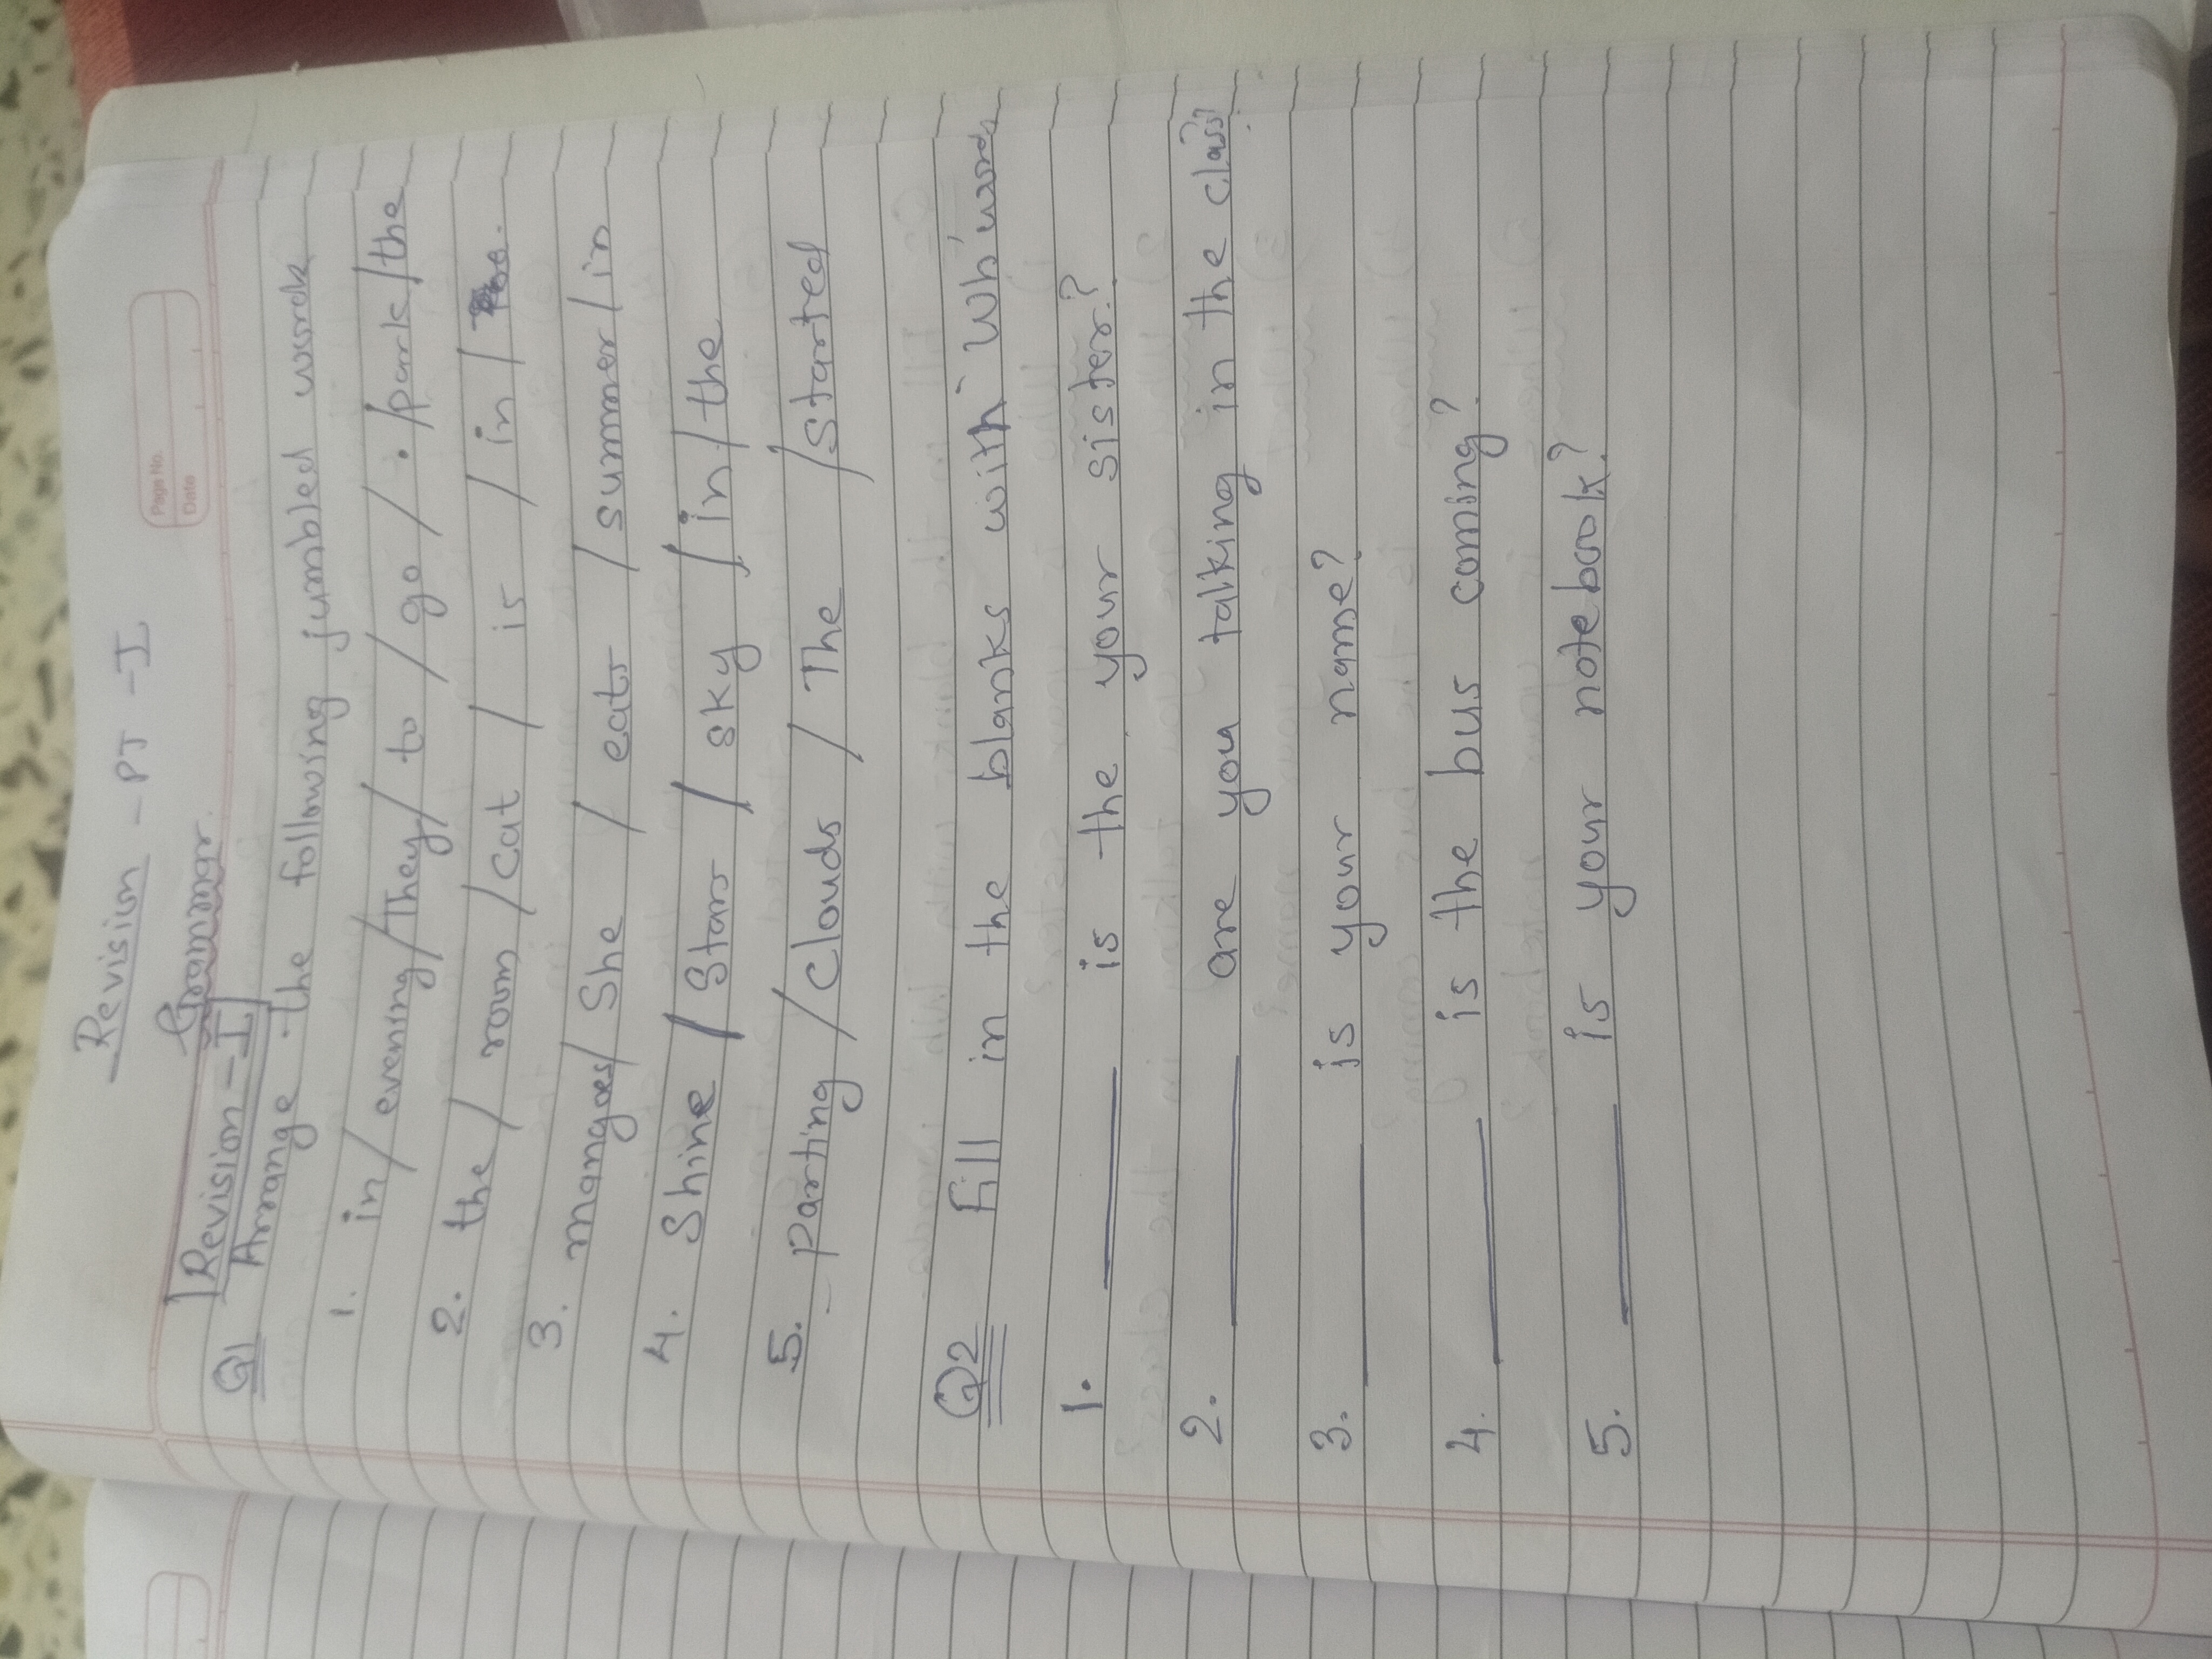 Revision - PT - I
Grammar.
Page No.
Date
Revision - I
Q1 Arrange the following jumbled work
1. in / evening / They / to / go / . / park / the
2. the / room / cat / is / in /
3. mangoes / She / eats / summer / in
4. Shine / Stars / sky / in / the
5. parting / Clouds / The / Started
Q2 Fill in the blanks with 'Wh' words
1. ____ is the your sister?
2. ____ are you talking in the class?
3. ____ is your name?
4. ____ is the bus coming?
5. ____ is your notebook?